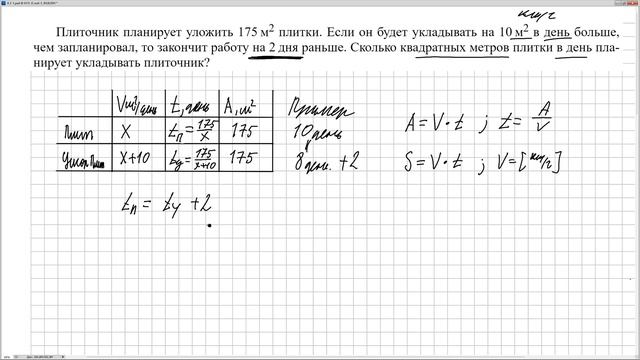 км/ч
Плиточник планирует уложить 175 м² плитки. Если он будет укладывать на 10 м² в день больше,
чем запланировал, то закончит работу на 2 дня раньше. Сколько квадратных метров плитки в день пла-
нирует укладывать плиточник?
V м²/день t, день A, м² Пример
X tп = 175/x 175 10 день
X+10 tу = 175/x+10 175 8 дн. +2
A = V · t ; t = A/V
S = V · t ; V = [км/ч]
tп = tу + 2